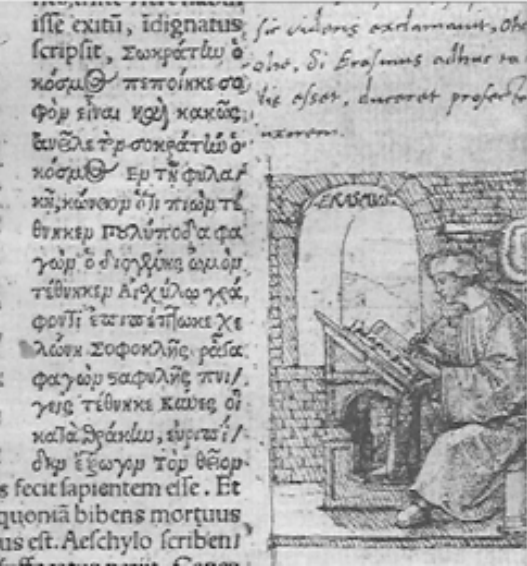 isse exitũ, ĩdignatus
scripsit, Σωκράτην ὁ
κόσμος πεποίηκε σο
φὸν εἶναι καὶ κακῶς
ἀνεῖλε τὸν σοκράτην ὁ
κόσμος Εν τῇ φυλα
κῇ, κώνειον ὅτι πιὼν τέ
θνηκεν πολύποδα φα
γὼν ὁ διογένης ὠμὸν
τέθνηκεν Αἰσχύλῳ γρά
φοντι ἐπιπέπτωκε χε
λώνη Σοφοκλῆς ῥᾶγα
φαγὼν σταφυλῆς πνι/
γεὶς τέθνηκε Κύνες οἱ
κατὰ θράκην, εὐριπί/
δην ἔτρωγον τὸν θεῖον
s fecit sapientem esse. Et
quoniã bibens mortuus
us est. Aeschylo scriben/
exclamavit, ohe
ohe, si Erasmus adhuc ta
lis esset, duceret profecto
uxorem.
ERASMVS.